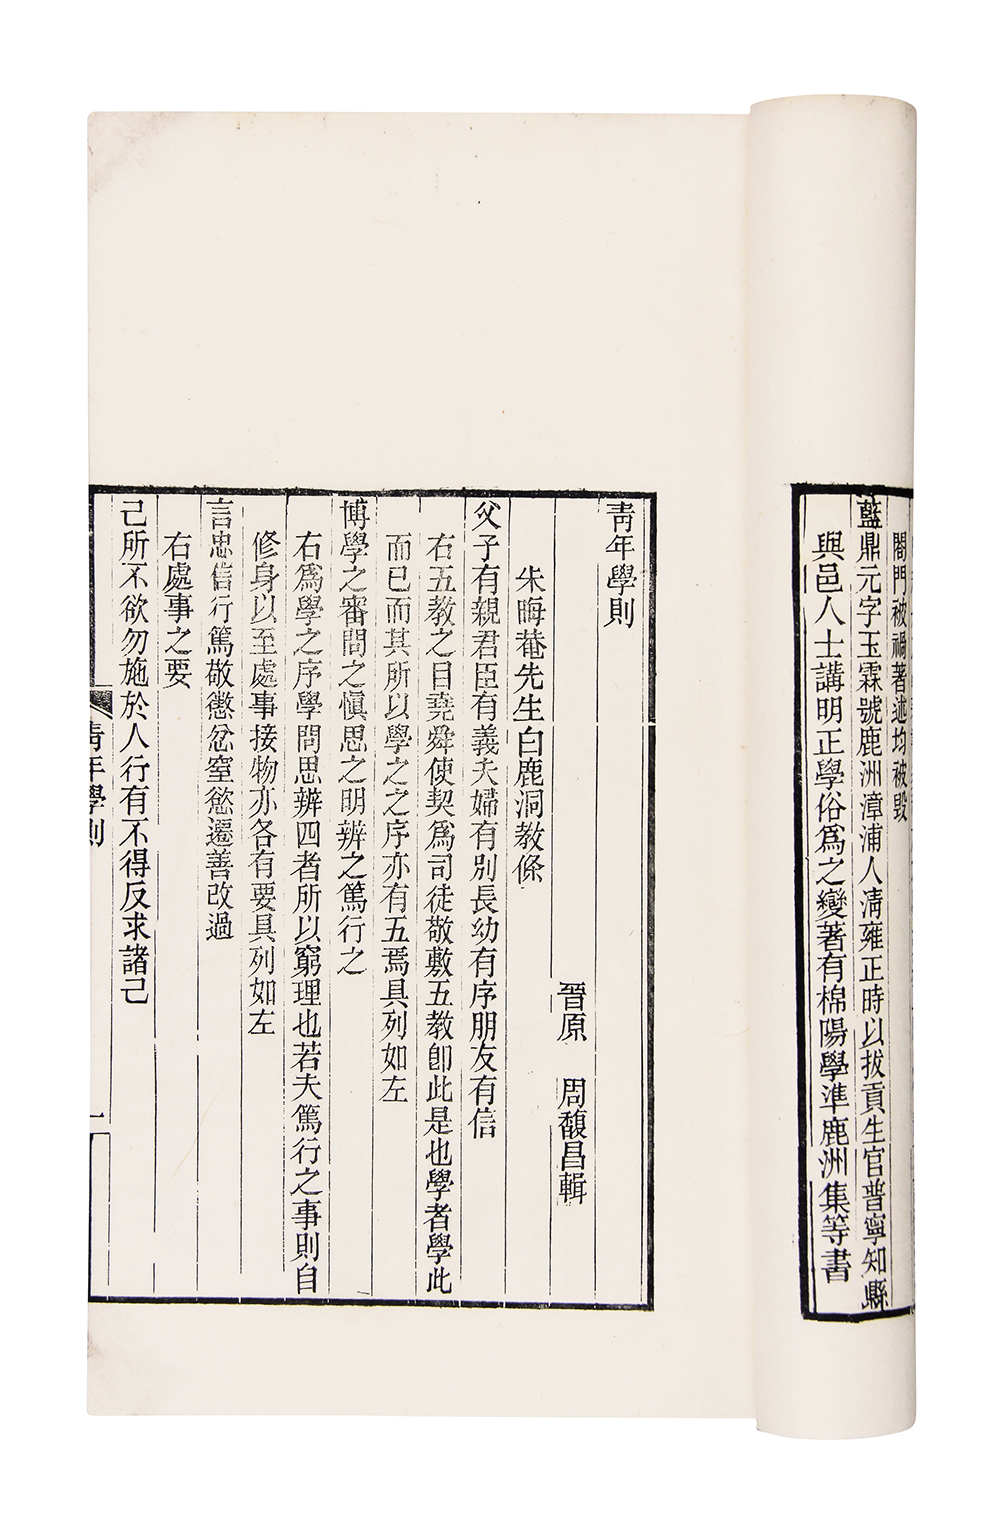 閤門被禍著述均被毀
藍鼎元字玉霖號鹿洲漳浦人淸雍正時以拔貢生官普寧知縣
與邑人士講明正學俗爲之變著有棉陽學準鹿洲集等書
靑年學則
晉原　周馥昌輯
朱晦菴先生白鹿洞教條
父子有親君臣有義夫婦有別長幼有序朋友有信
右五教之目堯舜使契爲司徒敬敷五教卽此是也學者學此
而已而其所以學之之序亦有五焉具列如左
博學之審問之愼思之明辨之篤行之
右爲學之序學問思辨四者所以窮理也若夫篤行之事則自
修身以至處事接物亦各有要具列如左
言忠信行篤敬懲忿窒慾遷善改過
右處事之要
己所不欲勿施於人行有不得反求諸己
靑年學則
一